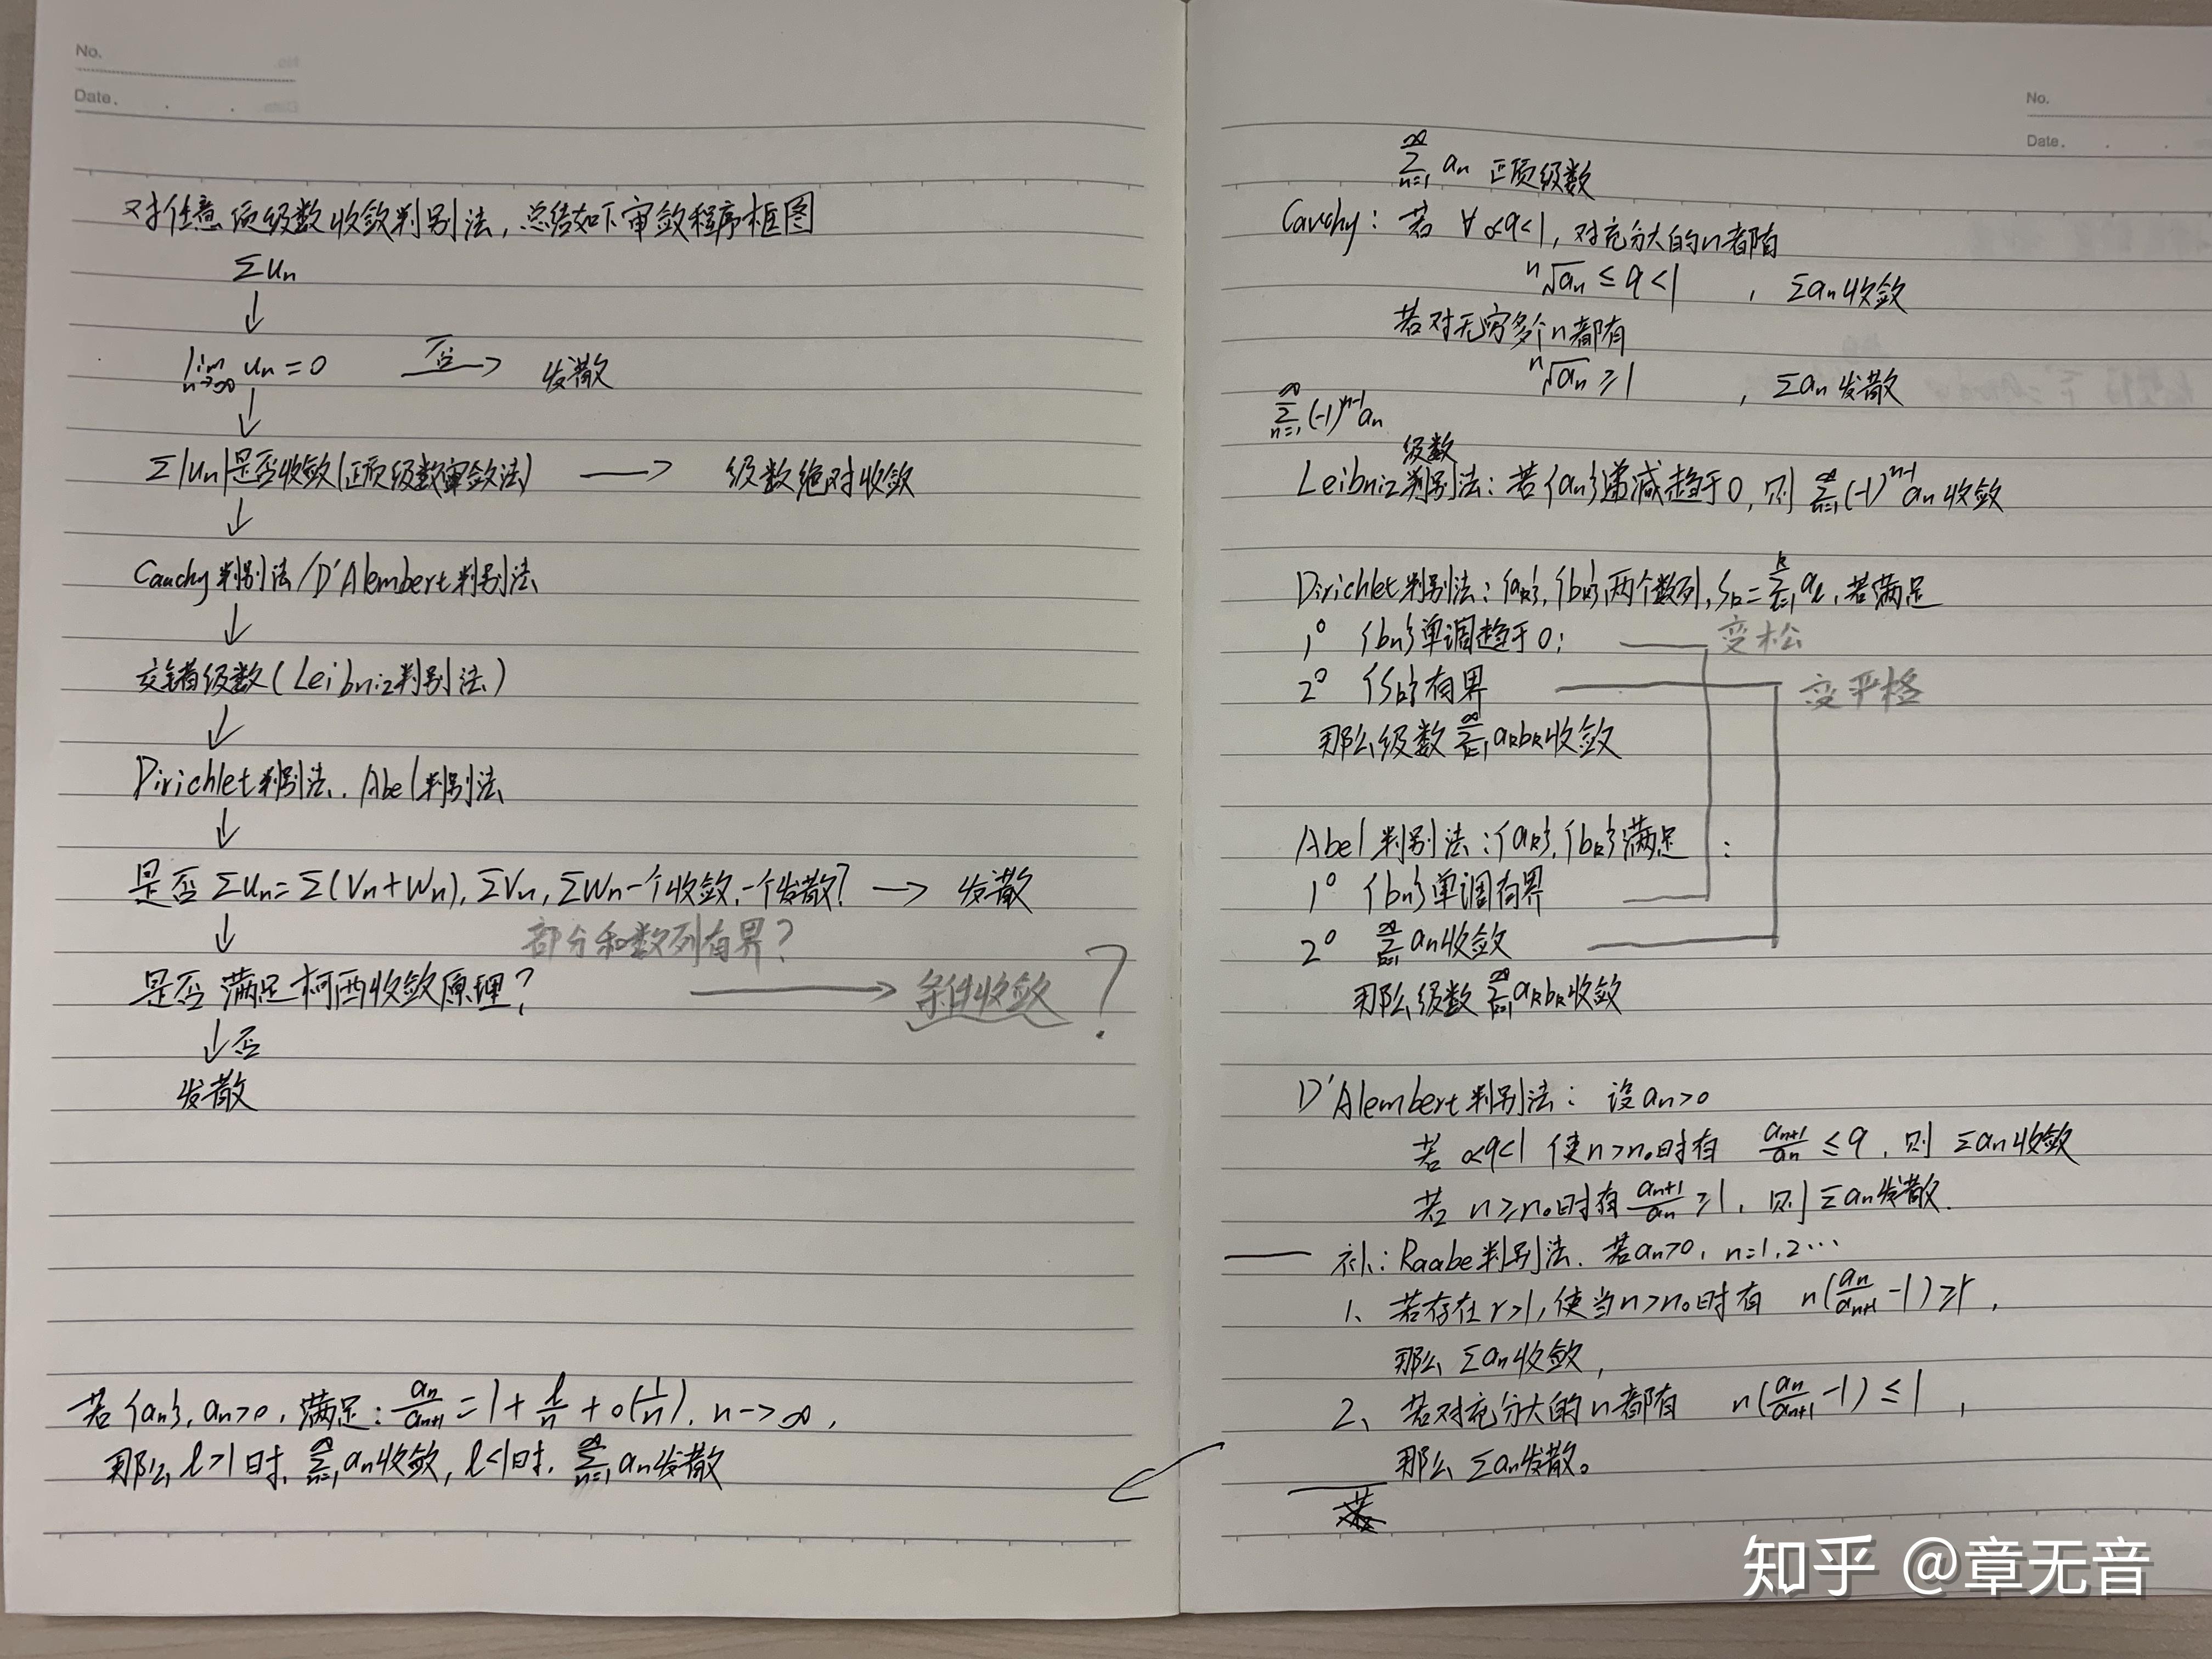 No.
Date.
对任意项级数收敛判别法,总结如下审敛程序框图
Σun
↓
lim n→∞ un=0 否→ 发散
↓
Σ|un|是否收敛(正项级数审敛法) → 级数绝对收敛
↓
Cauchy判别法/D'Alembert判别法
↓
交错级数(Leibniz判别法)
↓
Dirichlet判别法.Abel判别法
↓
是否Σun=Σ(Vn+Wn),ΣVn,ΣWn一个收敛.一个发散? → 发散
↓ 部分和数列有界?
是否满足柯西收敛原理? → 条件收敛 ?
↓否
发散
若{an},an>0,满足:an/an+1=1+l/n+o(1/n).n→∞,
那么l>1时,∞Σn=1 an收敛,l<1时.∞Σn=1 an发散
No.
Date.
∞Σn=1 an 正项级数
Cauchy:若 ∀ 0<q<1,对充分大的n都有
n√an ≤q<1 , Σan收敛
若对无穷多个n都有
n√an ≥1 , Σan发散
∞Σn=1 (-1)^n-1 an
级数
Leibniz判别法:若{an}递减趋于0,则 ∞Σn=1 (-1)^n-1 an收敛
Dirichlet判别法:{ak},{bk}两个数列,Sk=kΣl=1 al,若满足
1° {bn}单调趋于0; 变松
2° {Sk}有界 变严格
那么级数∞Σk=1 akbk收敛
Abel判别法:{ak},{bk}满足:
1° {bn}单调有界
2° ∞Σn=1 an收敛
那么级数∞Σk=1 akbk收敛
D'Alembert判别法: 设an>0
若0<q<1 使n>n0时有 an+1/an ≤q,则Σan收敛
若n≥n0时有an+1/an ≥1,则Σan发散.
补:Raabe判别法.若an>0, n=1,2…
1、若存在r>1,使当n>n0时有 n(an/an+1 -1)≥r,
那么Σan收敛,
2、若对充分大的n都有 n(an/an+1 -1)≤1,
那么Σan发散。
知乎 @章无音